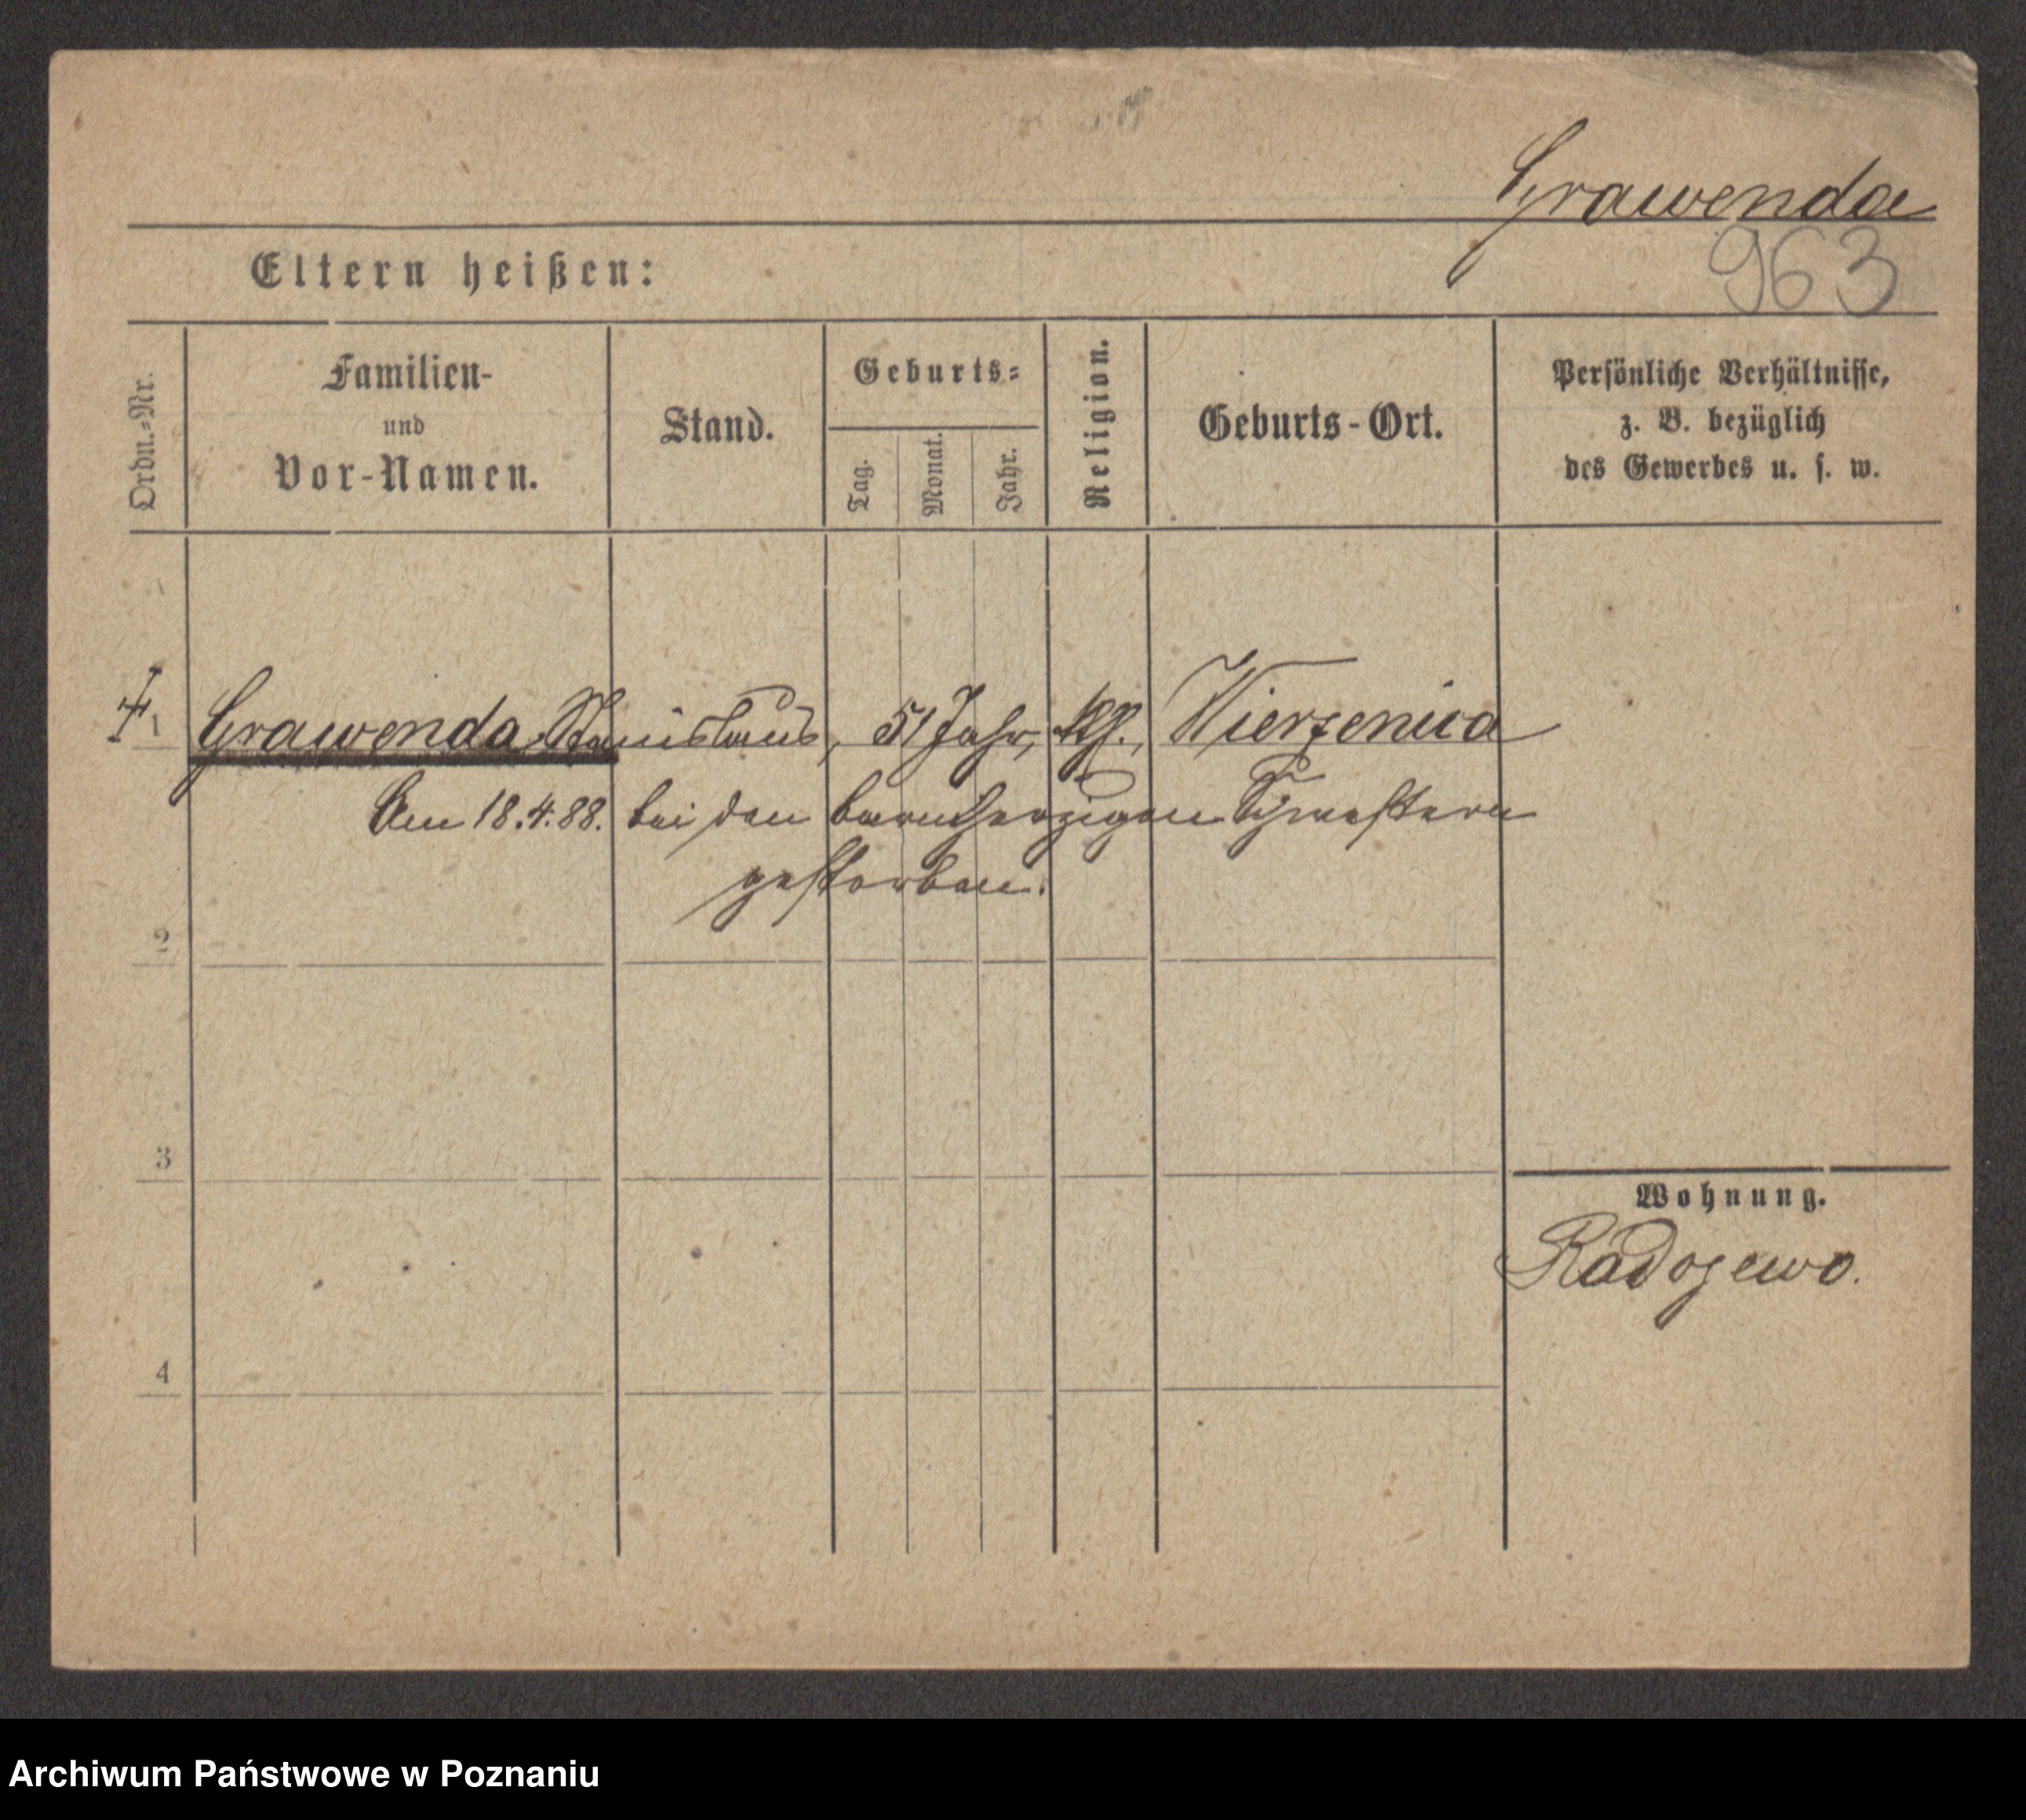 Grawenda
963
Eltern heißen:
Ordn.-Nr.
Familien-
und
Vor-Namen.
Stand.
Geburts-
Tag.
Monat.
Jahr.
Religion.
Geburts-Ort.
Persönliche Verhältnisse,
z. B. bezüglich
des Gewerbes u. s. w.
1
Grawenda Stanislaus, 51 Jahr, Wierzenica
Am 18.4.88. bei den barmherzigen Schwestern
gestorben.
2
3
4
Wohnung.
Radojewo.
Archiwum Państwowe w Poznaniu